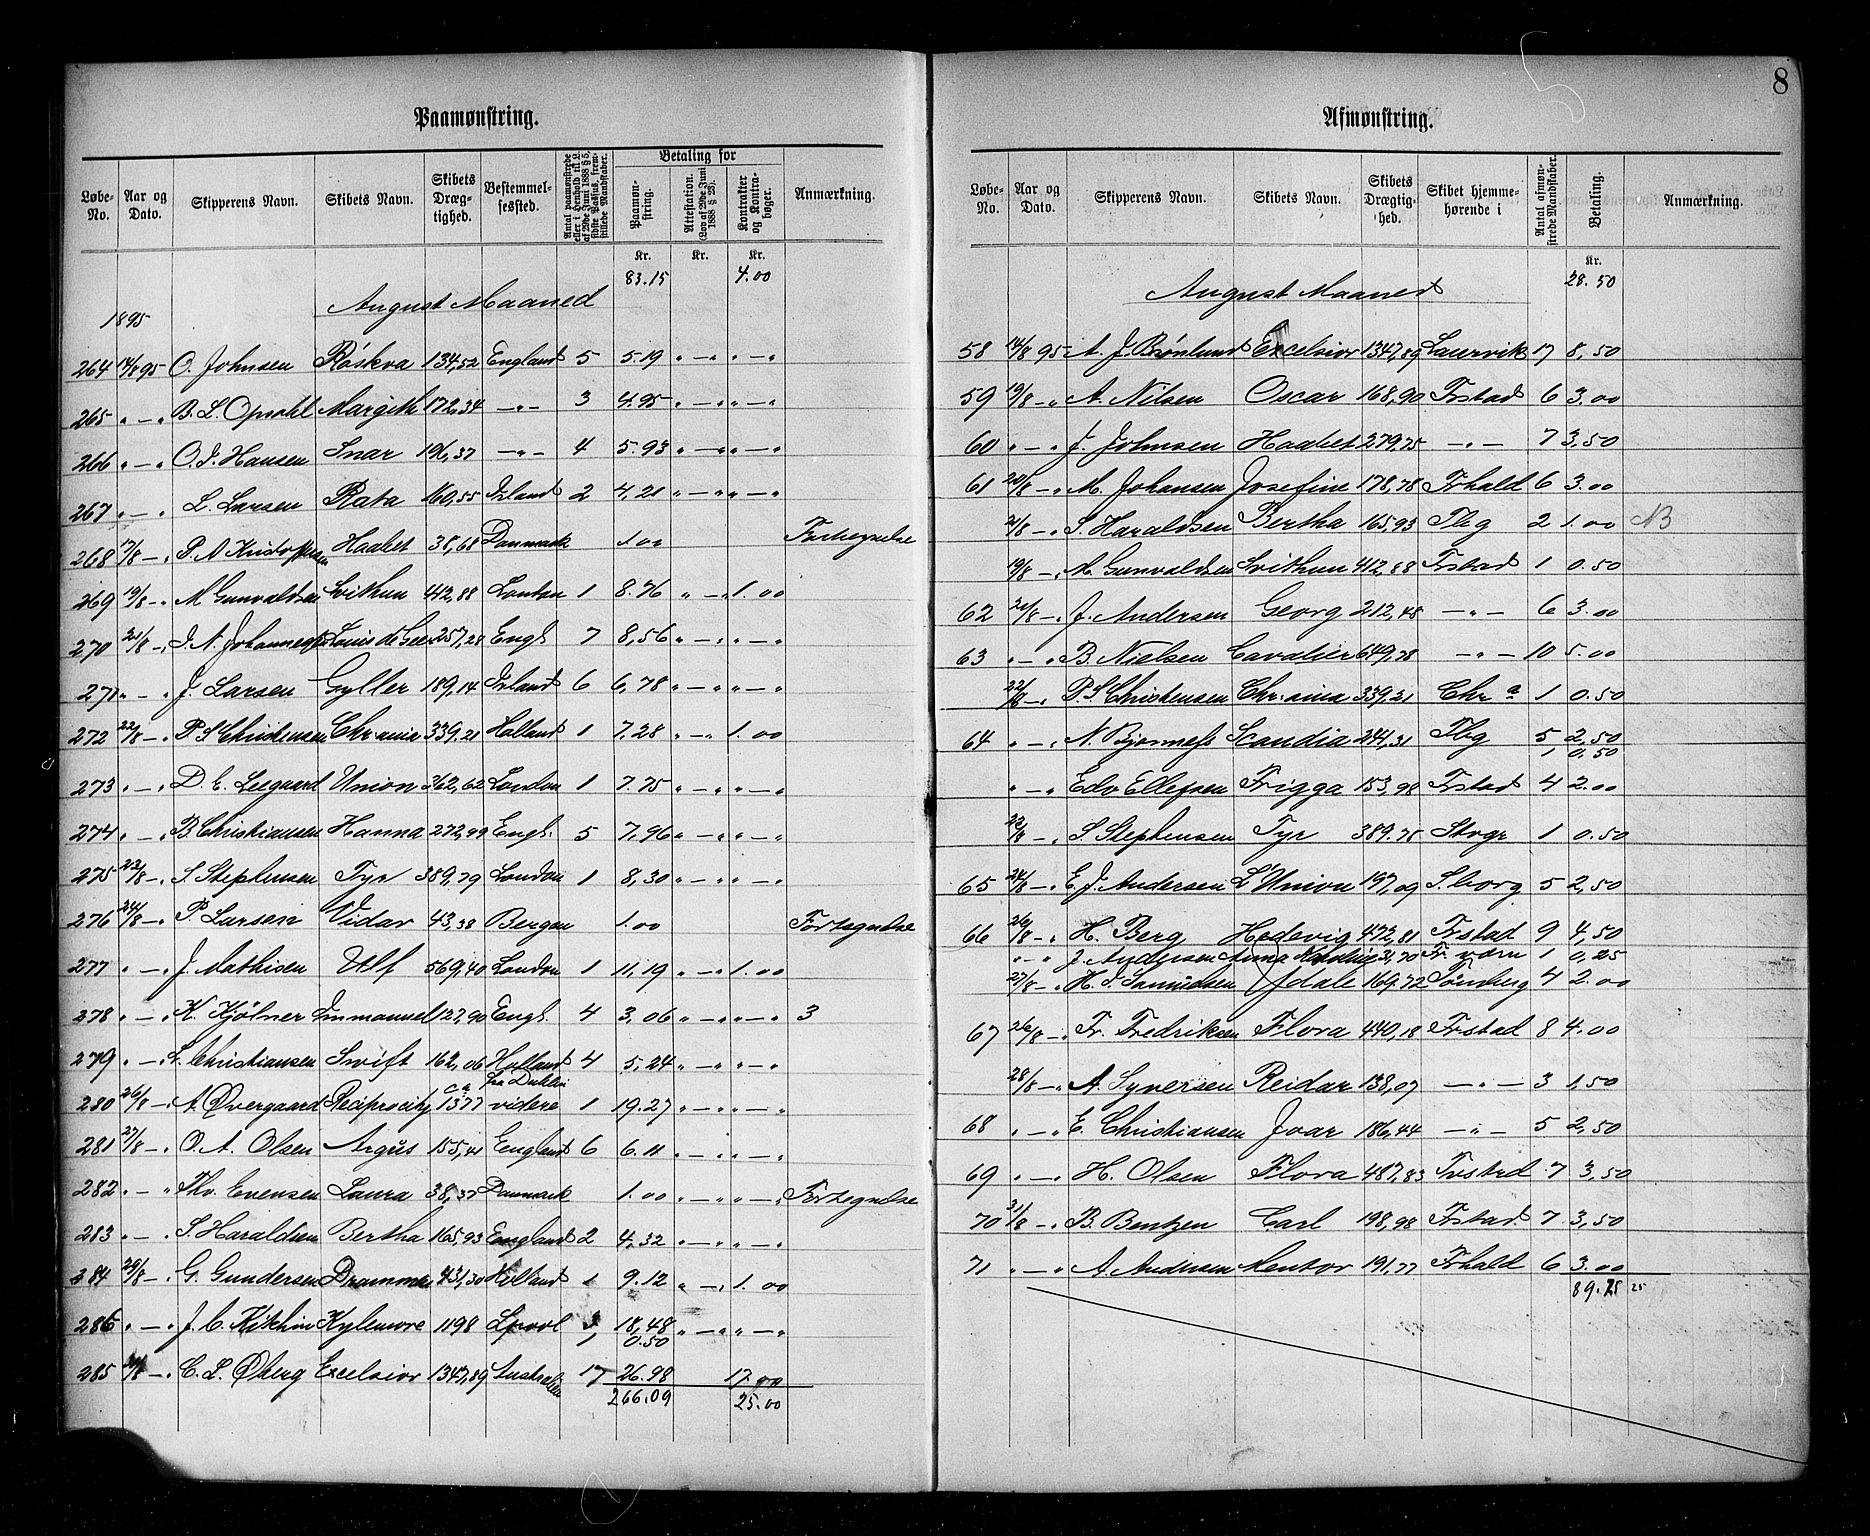 8
Paamønstring.
Løbe-No. Aar og Dato. Skipperens Navn. Skibets Navn. Skibets Drægtighed. Bestemmelsessted. Antal paamønstrede eller i Henhold til L. af 29de Juni 1888 § 5, sidste Passus, fremstillede Mandskaber. Betaling for Paamønstring. Attestation. (Lov af 29de Juni 1888 § 28). Kontrakter og Kontrabøger. Anmærkning.
Kr. Kr. Kr.
83.15 4.00
August Maaned
1895
264 14/8 95 O. Johnsen Røskva 134,52 England 5 5.19 " — " " — "
265 " — " B. L. Opsahl Margith 172,34 — " — 3 4.95 " — " " — "
266 " — " O. J. Hansen Snar 196,37 — " — 4 5.93 " — " " — "
267 " — " L. Larsen Rata 160,55 Island 2 4.21 " — " " — "
268 17/8 — " P. A. Kristoffersen Haabet 38,68 Danmark 1.00 Fortegnelse
269 19/8 — " M Gunvaldsen Svithun 442,88 London 1 8.76 " — " 1.00
270 21/8 — " J. N. Johannesen Louis de Geer 257,28 Engl. 7 8,56 " — " " — "
271 " — " J. Larsen Gyller 189,14 Island 6 6,78 " — " " — "
272 22/8 — " P. S Christensen Chr.ania 339,21 Holland 1 7.28 " — " 1.00
273 " — " D. E. Leegaard Union 362,62 London 1 7.75 " — " " — "
274 " — " B Christiansen Hanna 272,99 Engl. 5 7,96 " — " " — "
275 23/8 — " S. Stephensen Tyr 389,79 London 1 8,30 " — " " — "
276 24/8 — " P. Larsen Vidar 43,38 Bergen 1.00 Fortegnelse
277 " — " J. Mathisen Ulf 569,40 London 1 11,19 " — " 1.00
278 " — " K. Kjølner Immanuel 127,90 Engl. 4 3,06 " — " " — " 3
279 " — " L. Christiansen Swift 162,06 Holland 4 5,24 " — " " — "
280 26/8 — " A. Øvergaard Reciprocity ca 1377 fra Dublin videre 1 19.27 " — " " — "
281 27/8 — " O. A. Olsen Argus 155,41 England 6 6.11 " — " " — "
282 " — " Thv. Evensen Laura 38,37 Danmark 1.00 " — " " — " Fortegnelse
283 " — " S. Haraldsen Bertha 165,93 England 2 4,32 " — " " — "
284 29/8 — " G. Gundersen Drammen 431,30 Holland 1 9.12 " — " 1.00
286 " — " J. C. Kylemore 1198 Lpool 1 18,48 " — " " — "
0.50
285 — " C. L. Øberg Excelsior 1347,89 Australien 17 26.98 17.00
266.09 25.00
Afmønstring.
Løbe-No. Aar og Dato. Skipperens Navn. Skibets Navn. Skibets Drægtighed. Skibet hjemmehørende i Antal afmønstrede Mandskaber. Betaling. Anmærkning.
Kr.
28.50
August Maaned
58 14/8 95 A. J. Brønlund Excelsior 1347,89 Laurvik 17 8,50
59 19/8 — " A. Nilsen Oscar 168,90 Frstad 6 3.00
60 " — " J. Johnsen Haabet 279,75 — " — 7 3,50
61 20/8 — " M. Johansen Josefine 178,78 Frhald 6 3.00
21/8 — " S. Haraldsen Bertha 165,93 Tbg 2 1.00 NB
19/8 — " M. Gunvaldsen Svithun 412,88 Frstad 1 0.50
62 21/8 — " J. Andersen Georg 212,48 — " — 6 3.00
63 " — " B. Nielsen Cavalier 649,78 — " — 10 5.00
22/8 — " P. S Christensen Chr.ania 339,21 Chr a 1 0.50
64 " — " N. Bjønness Scandia 241,31 Tbg 5 2,50
1 0,50
" — " Edv Ellefsen Frigga 153,98 Frstad 4 2.00
22/8 — " S. Stephensen Tyr 389.75 Stvgr 1 0.50
65 24/8 — " E. J. Andersen L'Union 197,09 S.borg 5 2,50
66 26/8 — " H. Berg Hedevig 472,81 Frstad 9 4,50
" — " J. Andersen Anna Karoline 31,70 Fr værn 1 0,25
27/8 — " H. S. Samuelsen Ydale 169,72 Tönsberg 4 2.00
67 26/8 — " Fr. Fredriksen Flora 440,18 Frstad 8 4.00
28/8 — " A. Syversen Reidar 138,07 — " — 3 1,50
68 " — " E. Christiansen Ivar 186,44 — " — 5 2,50
69 " — " H. Olsen Flora 487,83 Frstad 7 3,50
70 31/8 — " B. Bentzen Carl 198,98 Frstad 7 3,50
71 " — " A. Andersen Mentor 191,77 Frhald 6 3.00
89.25 25